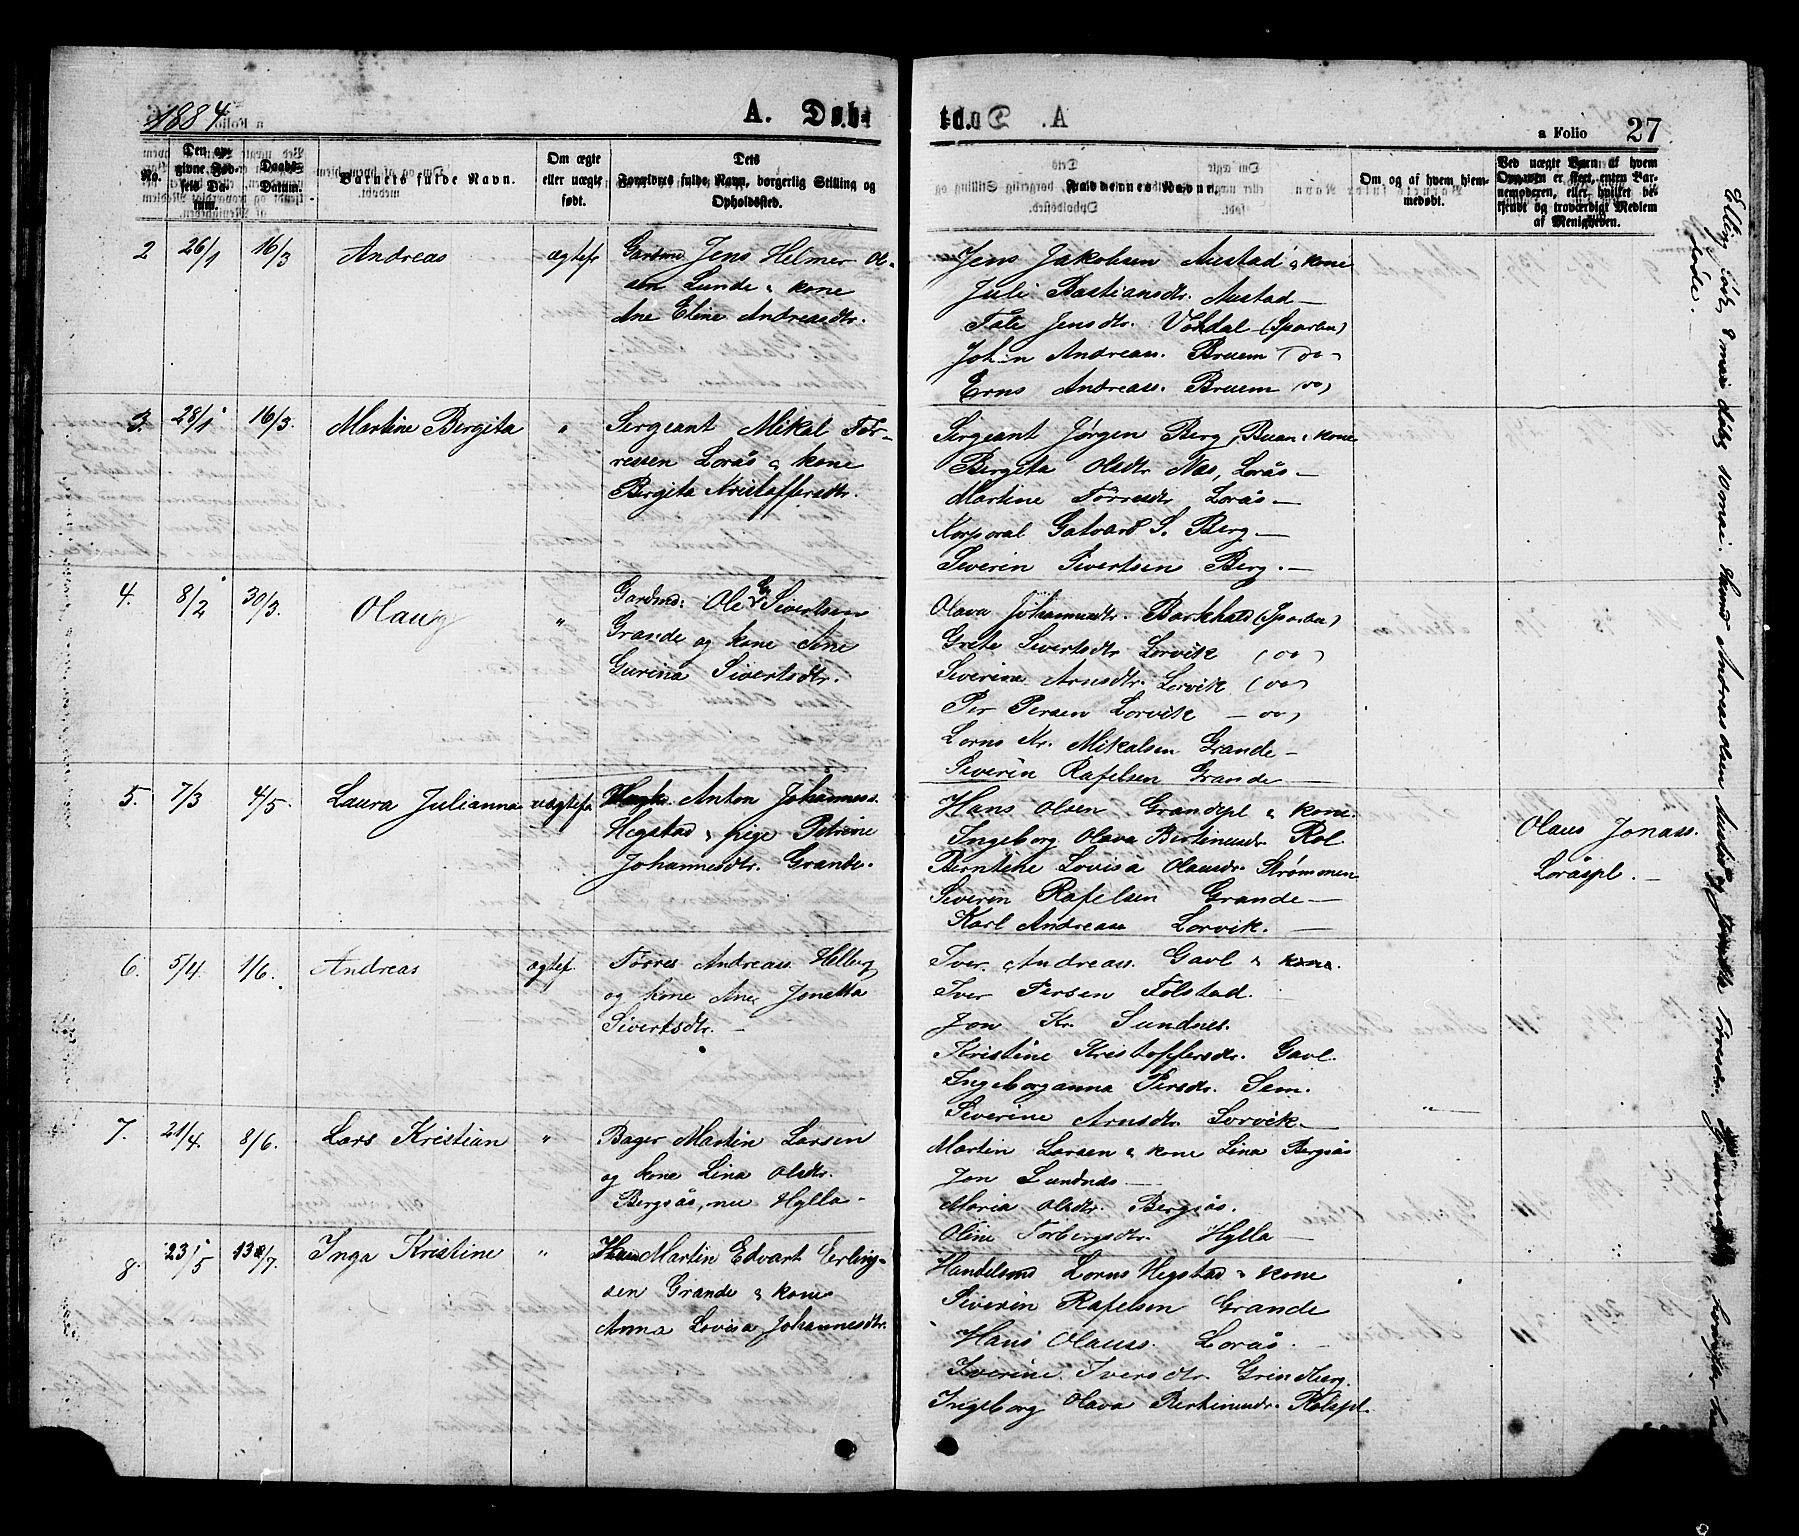 1884
A. Døbt
a Folio 27
No.
Den angivne Fødsels Datum.
Daabs-Datum.
Barnets fulde Navn.
Om ægte eller uægte født.
Dets Forældres fulde Navn, borgerlig Stilling og Opholdsted.
Faddernes Navne.
Om og af hvem hjemmedøbt.
Ved uægte Børn af hvem Opgaven er skeet, enten Barnemoderen, eller hvilket bekjendt og troværdigt Medlem af Menigheden.
2 26/1 16/3 Andreas ægtef
Gardmd Jens Helmer Ol-
sen Lunde & kone
Ane Eline Andreasdtr.
Jens Jakobsen Austad & kone
Juli Bastiansdtr. Austad —
Jensdtr. Voldal (Sparbu)
John Andreass. Bruem (do)
Erns Andreass. Bruem (do)
3. 28/1 16/3. Martine Bergita "
Sergeant Mikal Tør-
resen Lorås & kone
Bergita Kristoffersdtr.
Sergeant Jørgen Berg, Buan & kone
Bergita Olsdtr Nas, Lorås —
Martine Tørresdtr Lorås —
Korporal Gatvard S. Berg —
Severin Sivertsen Berg. —
4. 8/2 30/3. Olaug "
Gardmd: Ole Sivertsen
Grande og kone Ane
Gurina Sivertsdtr.
Olava Johannesdtr. Barkhald (Sparbu)
Grete Sivertsdtr Lorvik (do)
Siverine Arnsdtr. Lorvik (do)
Per Persen Lorvik — do)
Lorns Kr. Mikalsen Grande —
Severin Rafelsen Grande —
5. 7/3 4/5. Laura Julianna uægtef.
Anton Johanness.
Hegstad & pige Petrine
Johannesdtr. Grande.
Hans Olsen Grandepl & kone.
Ingeborg Olava Bertinusdr. Rol
Berntine Lovisa Olausdr. Strømmen
Severin Rafelsen Grande —
Karl Andreass Lorvik. —
Olaus Jonass.
Loråspl. —
6. 5/4. 1/6. Andreas ægtef.
Tørres Andreass. Helberg
og kone Ane Jonetta
Sivertsdtr. —
Iver Andreass. Gavl & kone.
Iver Persen Folstad.
Jon Kr. Sundnes.
Kristine Kristoffersdtr. Gavl.
Ingeborganna Persdtr. Sem.
Siverine Arnsdtr. Lorvik. —
"
7. 21/4. 8/6. Lars Kristian "
Bager Martin Larsen
og kone Lina Olsdtr.
Bergsås, nu Hylla —
Martin Larsen & kone Lina Bergsås
Jon Sundnes —
Maria Olsdtr. Bergsås.
Oline Torbergsdtr. Hylla —
8. 23/5 13/7. Inga Kristine "
Martin Edvart Erling-
sen Grande & kone
Anna Lovisa Johannesdtr.
Handelsmd Lorns Hegstad & kone
Siverin Rafelsen Grande
Hans Olauss. Lorås. —
Iverine Iversdtr. Grindberg.
Ingeborg Olava Bertinusdr. Rolspl.